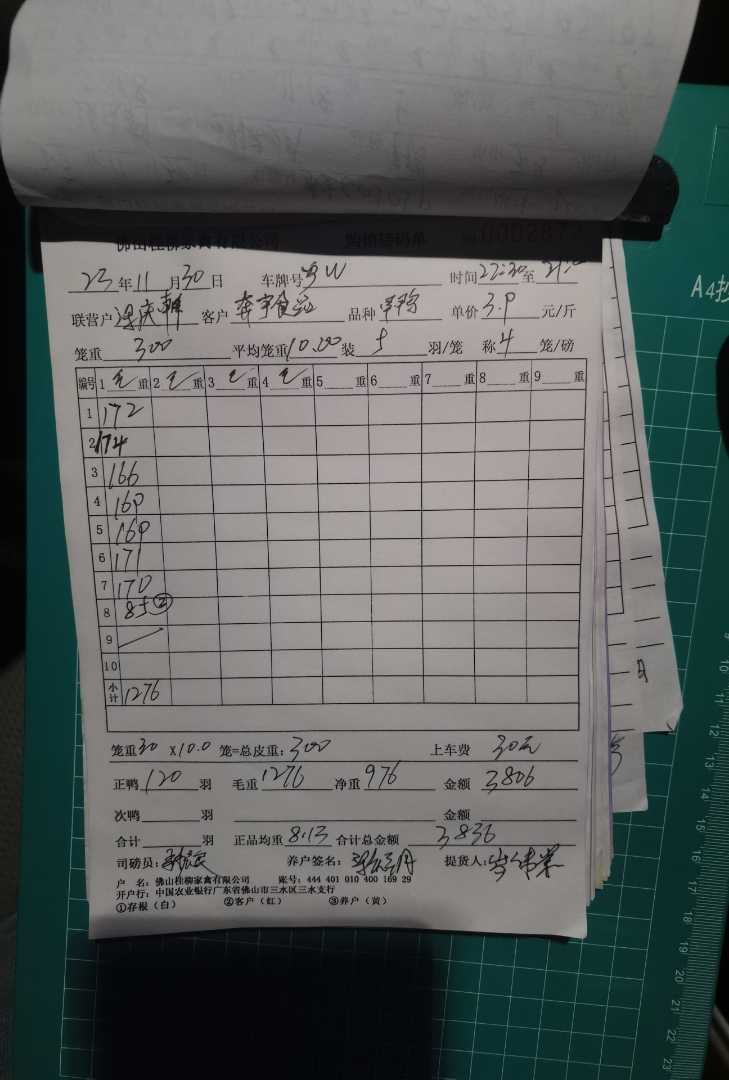 佛山桂柳家禽有限公司 购销磅码单 0002872
23年11月30日 车牌号 粤W 时间22:30至
联营户 客户 品种 单价3.9元/斤
笼重300 平均笼重10.00装5羽/笼 称4笼/磅
编号 1毛重 2毛重 3毛重 4毛重 5重 6重 7重 8重 9重
1 172
2 174
3 166
4 169
5 169
6 171
7 170
8 85②
9
10
小计 1276
笼重30X10.0笼=总皮重:300 上车费 30元
正鸭120羽 毛重1276 净重976 金额3806
次鸭 羽 金额
合计 羽 正品均重8.13合计总金额3836
司磅员: 养户签名: 提货人:
户 名:佛山桂柳家禽有限公司 账号:444 401 010 400 169 29
开户行:中国农业银行广东省佛山市三水区三水支行
①存根(白) ②客户(红) ③养户(黄)
A4抄
月
9
10
11
12
13
14
15
16
17
18
19
20
21
22
23